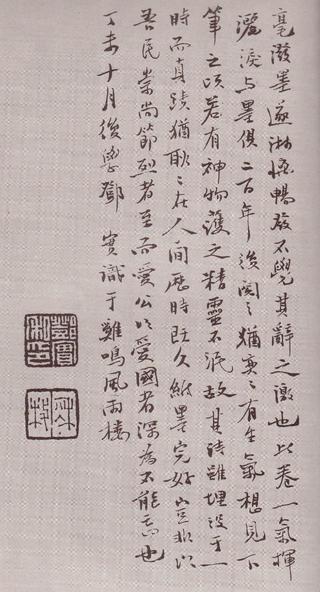 毫潑墨遂淋漓暢發不覺其辭之激也此卷一氣揮
灑淚与墨俱二百年後閱之猶奕〻有生氣想見下
筆之頃若有神物護之精靈不泯故其詩雖埋没于一
時而真蹟猶耿〻在人間歷時既久墨完好豈非以
吾民崇尚節烈者至而愛公以愛國者深為不能忘也
丁未十月後學鄧實識于雞鳴風雨樓
鄧實私印
秋枚